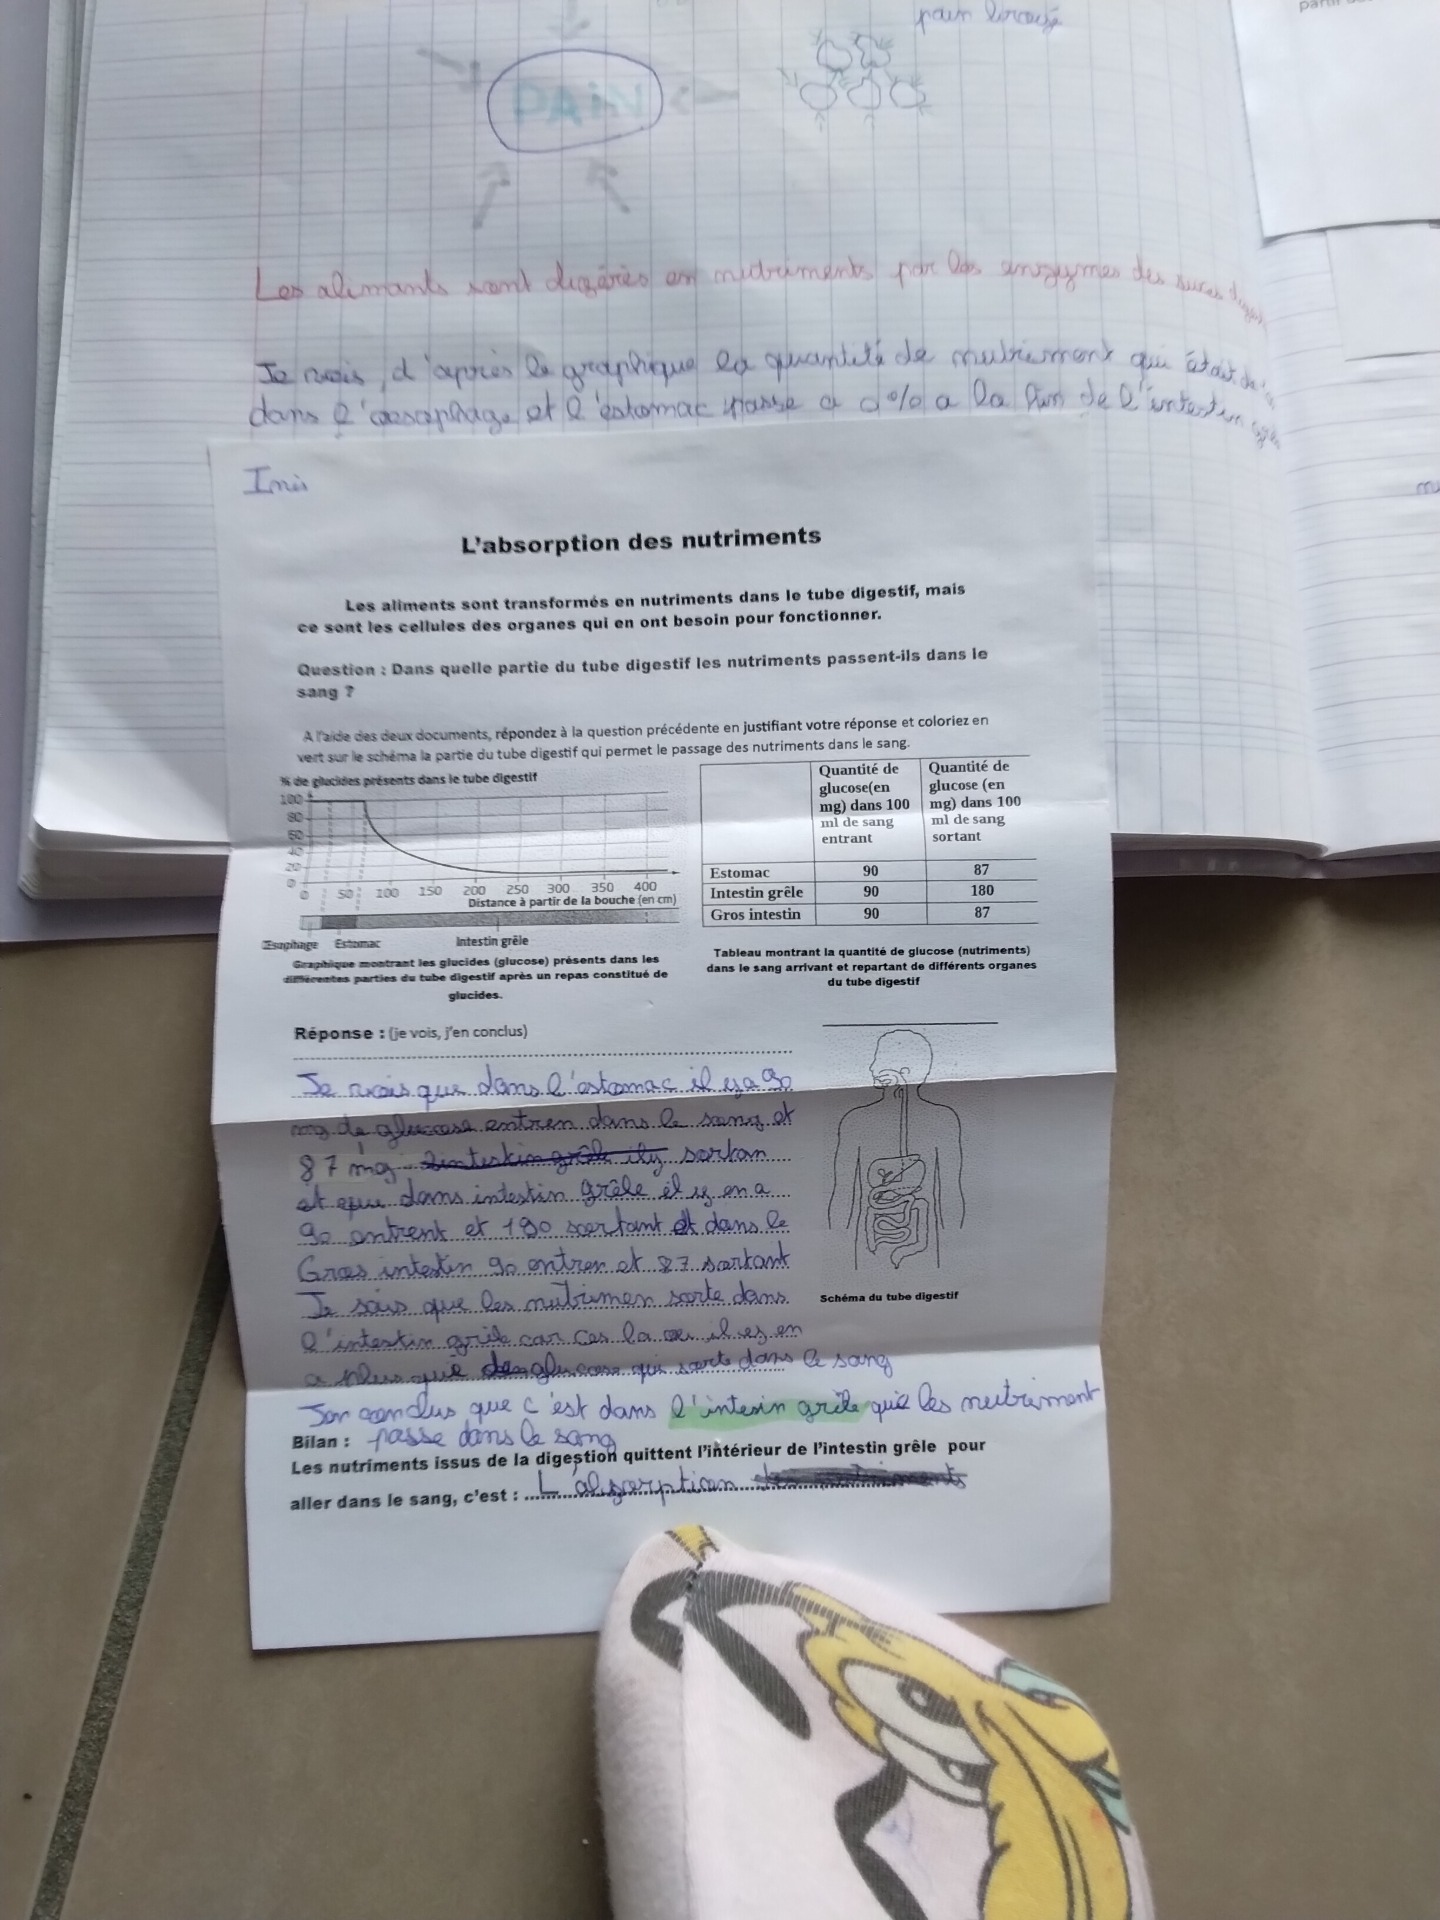 pain
PAIN
Les alimants sont digérés en nutriments par les enzymes des sucs
Je vois, d'après le graphique la quantité de nutriment qui était
dans l'oesophage et l'estomac passe a 0% a la fin de l'intestin
Inis
L'absorption des nutriments
Les aliments sont transformés en nutriments dans le tube digestif, mais
ce sont les cellules des organes qui en ont besoin pour fonctionner.
Question : Dans quelle partie du tube digestif les nutriments passent-ils dans le
sang ?
A l'aide des deux documents, répondez à la question précédente en justifiant votre réponse et coloriez en
vert sur le schéma la partie du tube digestif qui permet le passage des nutriments dans le sang.
% de glucides présents dans le tube digestif
100
80
60
40
20
0
0 50 100 150 200 250 300 350 400
Distance à partir de la bouche (en cm)
Œsophage Estomac Intestin grêle
Graphique montrant les glucides (glucose) présents dans les
différentes parties du tube digestif après un repas constitué de
glucides.
Quantité de
glucose(en
mg) dans 100
ml de sang
entrant
Quantité de
glucose (en
mg) dans 100
ml de sang
sortant
Estomac 90 87
Intestin grêle 90 180
Gros intestin 90 87
Tableau montrant la quantité de glucose (nutriments)
dans le sang arrivant et repartant de différents organes
du tube digestif
Réponse : (je vois, j'en conclus)
Je vois que dans l'estomac il y a 90
mg de glucose entren dans le sang et
87 mg sortan
et que dans intestin grêle il y en a
90 entrent et 180 sortant et dans le
Gros intestin 90 entrer et 87 sortant
Je sais que les nutrimen sorte dans
l'intestin grile car ces la ou il y en
a plus que glucose qui sorte dans le sang
Jen conclus que c'est dans l'intesin grile que les neutriment
passe dans le sang
Schéma du tube digestif
Bilan :
Les nutriments issus de la digestion quittent l'intérieur de l'intestin grêle pour
aller dans le sang, c'est : L'absorption